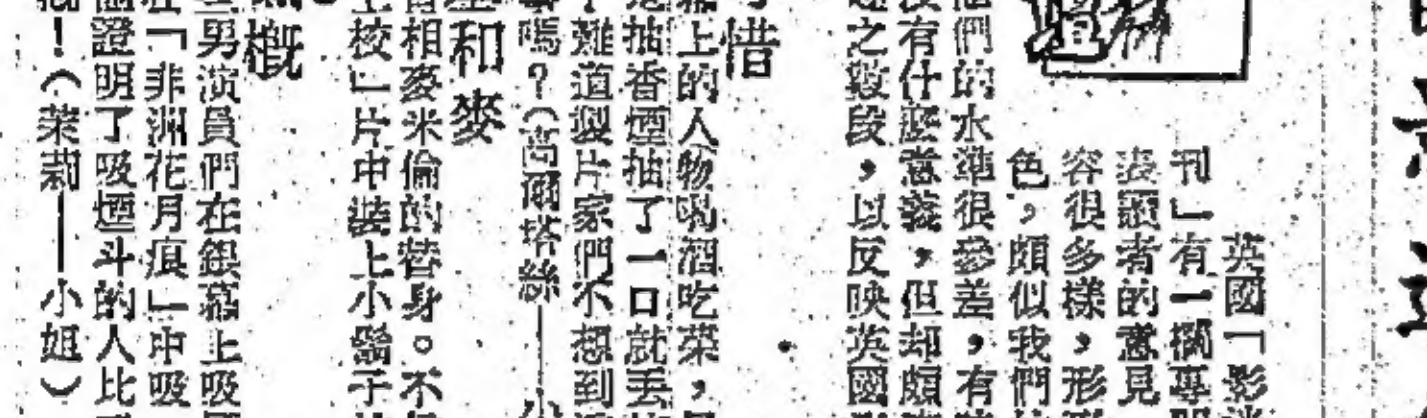 英國「影
刊」有一欄專
表讀者的意見
容很多樣,形
色,頗似我們
他們的水準很參差,有
沒有什麼意義,但却頗
之幾段,以反映英國
惜
上的人物喝酒吃菜,
抽香煙抽了一口就丟
難道製片家們不想到
嗎?(高爾塔絲——小
和麥
相麥米倫的替身。不
上校」片中裝上小鬍子
概
男演員們在銀幕上吸
「非洲花月痕」中吸
證明了吸煙斗的人比
!(茉莉——小姐)